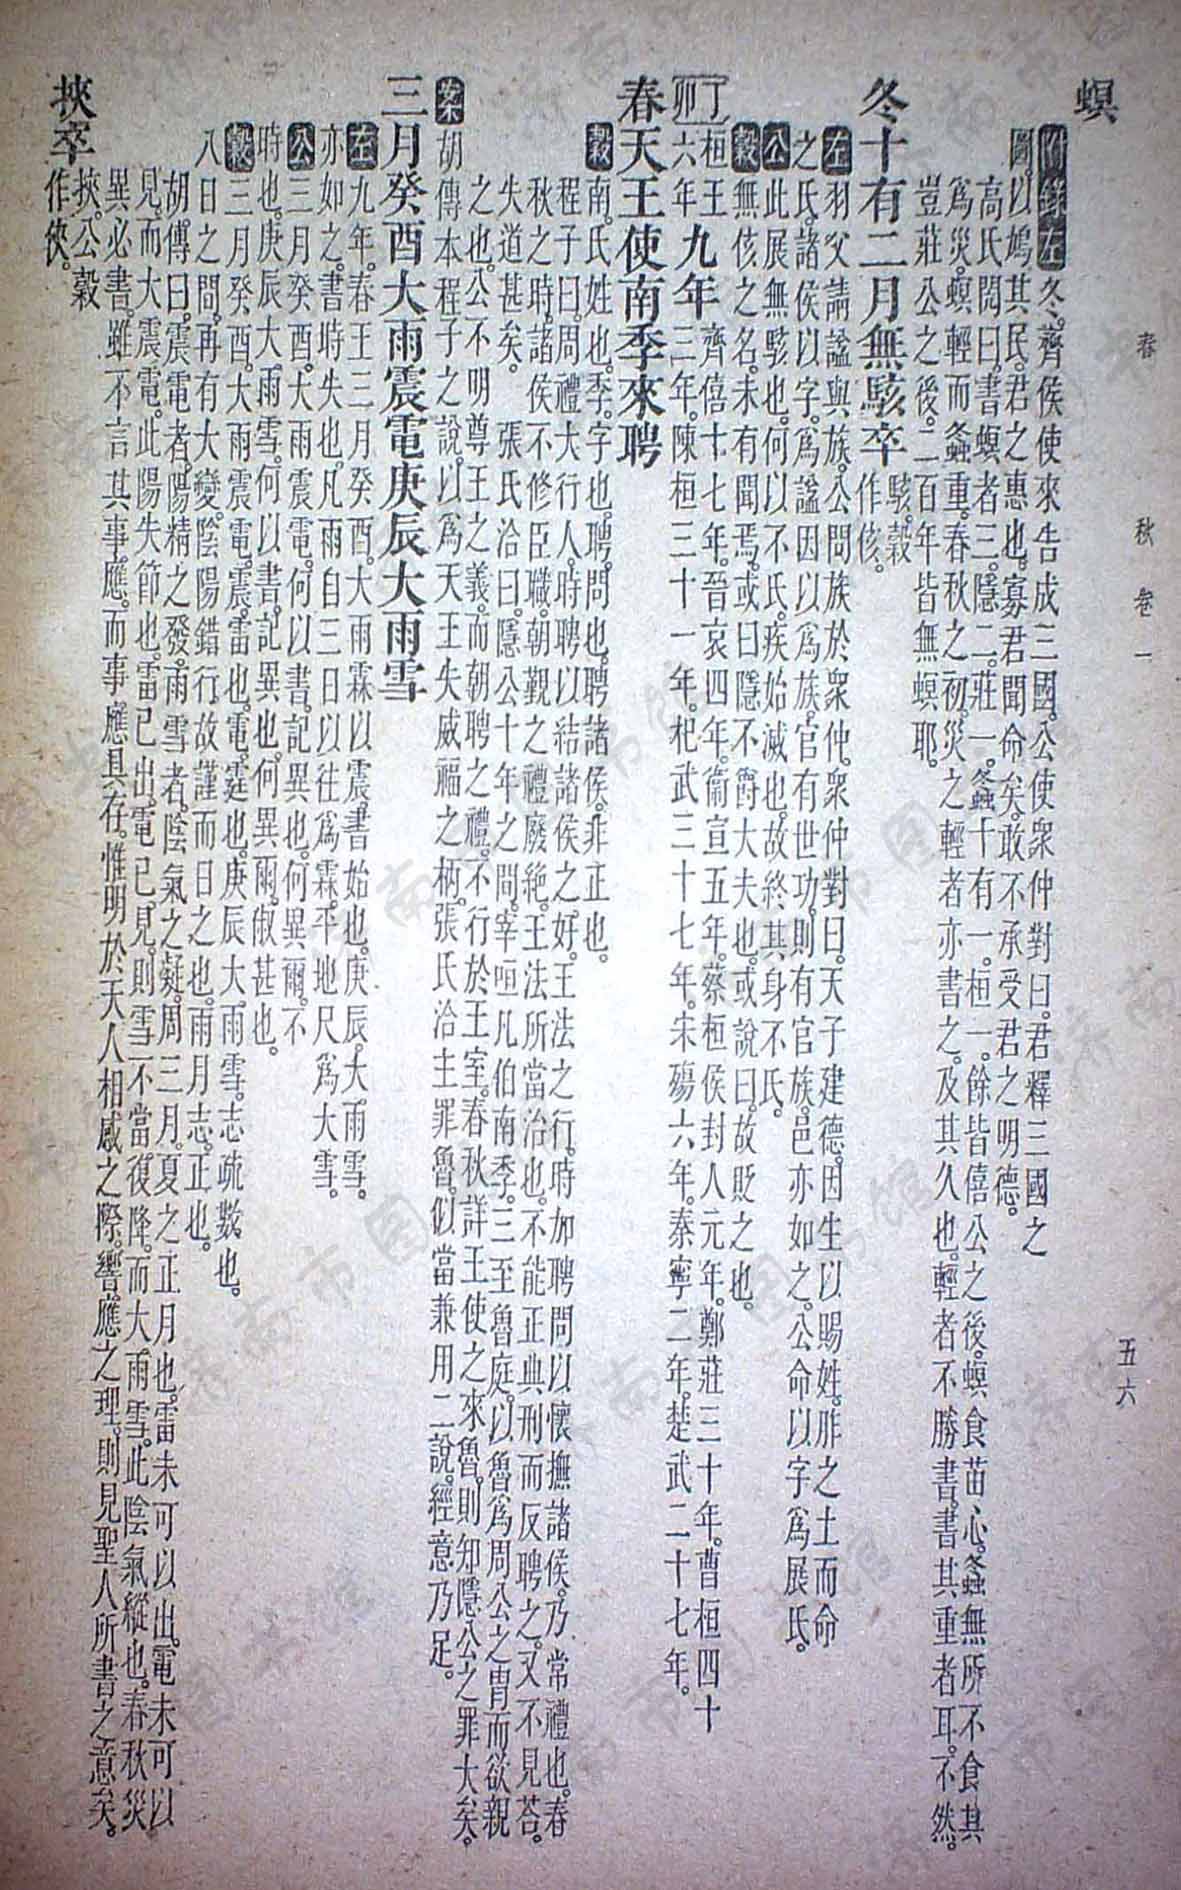 春秋 卷一 五六
螟
附錄左冬。齊侯使來告成三國。公使衆仲對曰。君釋三國之
圖。以鳩其民。君之惠也。寡君聞命矣。敢不承受君之明德。
高氏閌曰。書螟者三。隱二。莊一。螽十有一。桓一。餘皆僖公之後。螟食苗心。螽無所不食。其
爲災。螟輕而螽重。春秋之初。災之輕者亦書之。及其久也。輕者不勝書。書其重者耳。不然。
豈莊公之後。二百年皆無螟耶。
冬十有二月無駭卒 駭。穀作侅。
左羽父請諡與族。公問族於衆仲。衆仲對曰。天子建德。因生以賜姓。胙之土而命
之氏。諸侯以字。爲諡因以爲族。官有世功。則有官族。邑亦如之。公命以字爲展氏。
公此展無駭也。何以不氏。疾始滅也。故終其身不氏。
穀無侅之名。未有聞焉。或曰隱不爵大夫也。或說曰。故貶之也。
丁卯 桓王六年 九年 齊僖十七年。晉哀四年。衞宣五年。蔡桓侯封人元年。鄭莊三十年。曹桓四十
三年。陳桓三十一年。杞武三十七年。宋殤六年。秦寧二年。楚武二十七年。
春天王使南季來聘
穀南。氏姓也。季。字也。聘。問也。聘諸侯。非正也。
程子曰。周禮大行人。時聘以結諸侯之好。王法之行。時加聘問以懷撫諸侯。乃常禮也。春
秋之時。諸侯不修臣職。朝覲之禮廢絶。王法所當治也。不能正典刑而反聘之。又不見荅。
失道甚矣。 張氏洽曰。隱公十年之間。宰咺凡伯南季。三至魯庭。以魯爲周公之冑而欲親
之也。公不明尊王之義。而朝聘之禮。不行於王室。春秋詳王使之來魯。則知隱公之罪大矣。
案胡傳本程子之說。以爲天王失威福之柄。張氏洽主罪魯。似當兼用二說。經意乃足。
三月癸酉大雨震電庚辰大雨雪
左九年。春王三月癸酉。大雨霖以震。書始也。庚辰。大雨雪。
亦如之。書時失也。凡雨自三日以往爲霖。平地尺爲大雪。
公三月癸酉。大雨震電。何以書。記異也。何異爾。不
時也。庚辰大雨雪。何以書。記異也。何異爾。俶甚也。
穀三月癸酉。大雨震電。震。雷也。電。霆也。庚辰大雨雪。志疏數也。
八日之間。再有大變。陰陽錯行。故謹而日之也。雨月志。正也。
胡傳曰。震電者。陽精之發。雨雪者。陰氣之凝。周三月。夏之正月也。雷未可以出。電未可以
見。而大震電。此陽失節也。雷已出。電已見。則雪不當復降。而大雨雪。此陰氣縱也。春秋災
異必書。雖不言其事應。而事應具存。惟明於天人相感之際。響應之理。則見聖人所書之意矣。
挾卒 挾。公穀作俠。